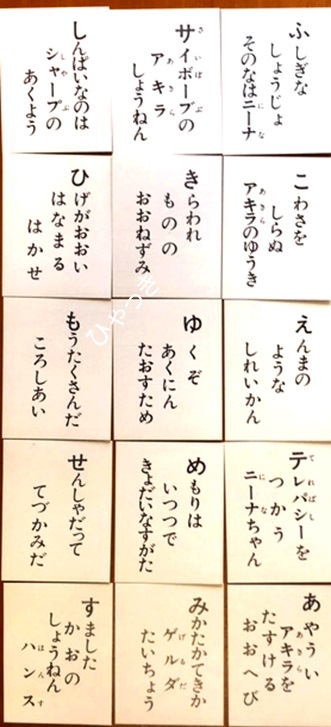 ふしぎな
しょうじょ
そのなはニーナ
サイボーブの
アキラ
しょうねん
しんぱいなのは
シャープの
あくよう
こわさを
しらぬ
アキラのゆうき
きらわれ
ものの
おおねずみ
ひげがおおい
はなまる
はかせ
えんまの
ような
しれいかん
ゆくぞ
あくにん
たおすため
もうたくさんだ
ころしあい
テレパシーを
つかう
ニーナちゃん
めもりは
いつつで
きょだいなすがた
せんしゃだって
てづかみだ
あやうい
アキラを
たすける
おおへび
みかたかてきか
ゲルダ
たいちょう
すました
かおの
しょうねん
ハンス
ひやつき